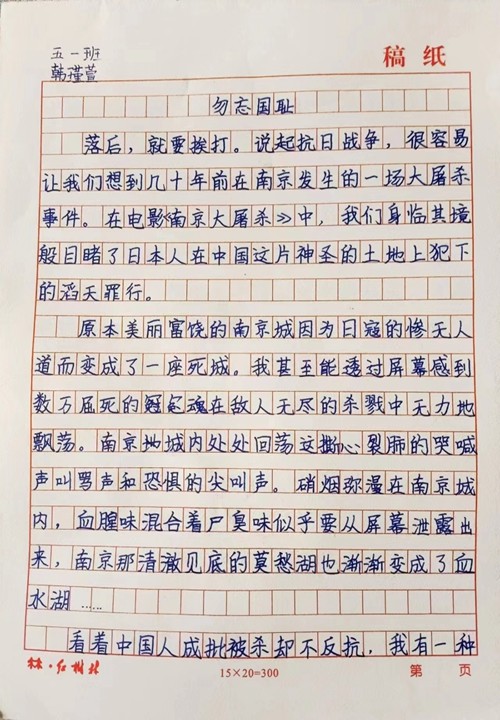 五一班
韩瑾萱
稿纸
勿忘国耻
落后，就要挨打。说起抗日战争，很容易
让我们想到几十年前在南京发生的一场大屠杀
事件。在电影《南京大屠杀》中，我们身临其境
般目睹了日本人在中国这片神圣的土地上犯下
的滔天罪行。
原本美丽富饶的南京城因为日寇的惨无人
道而变成了一座死城。我甚至能透过屏幕感到
数万屈死的冤魂在敌人无尽的杀戮中无力地
飘荡。南京城内处处回荡这撕心裂肺的哭喊
声叫骂声和恐惧的尖叫声。硝烟弥漫在南京城
内，血腥味混合着尸臭味似乎要从屏幕泄露出
来，南京那清澈见底的莫愁湖也渐渐变成了血
水湖……
看着中国人成批被杀却不反抗，我有一种
15×20=300
第 页